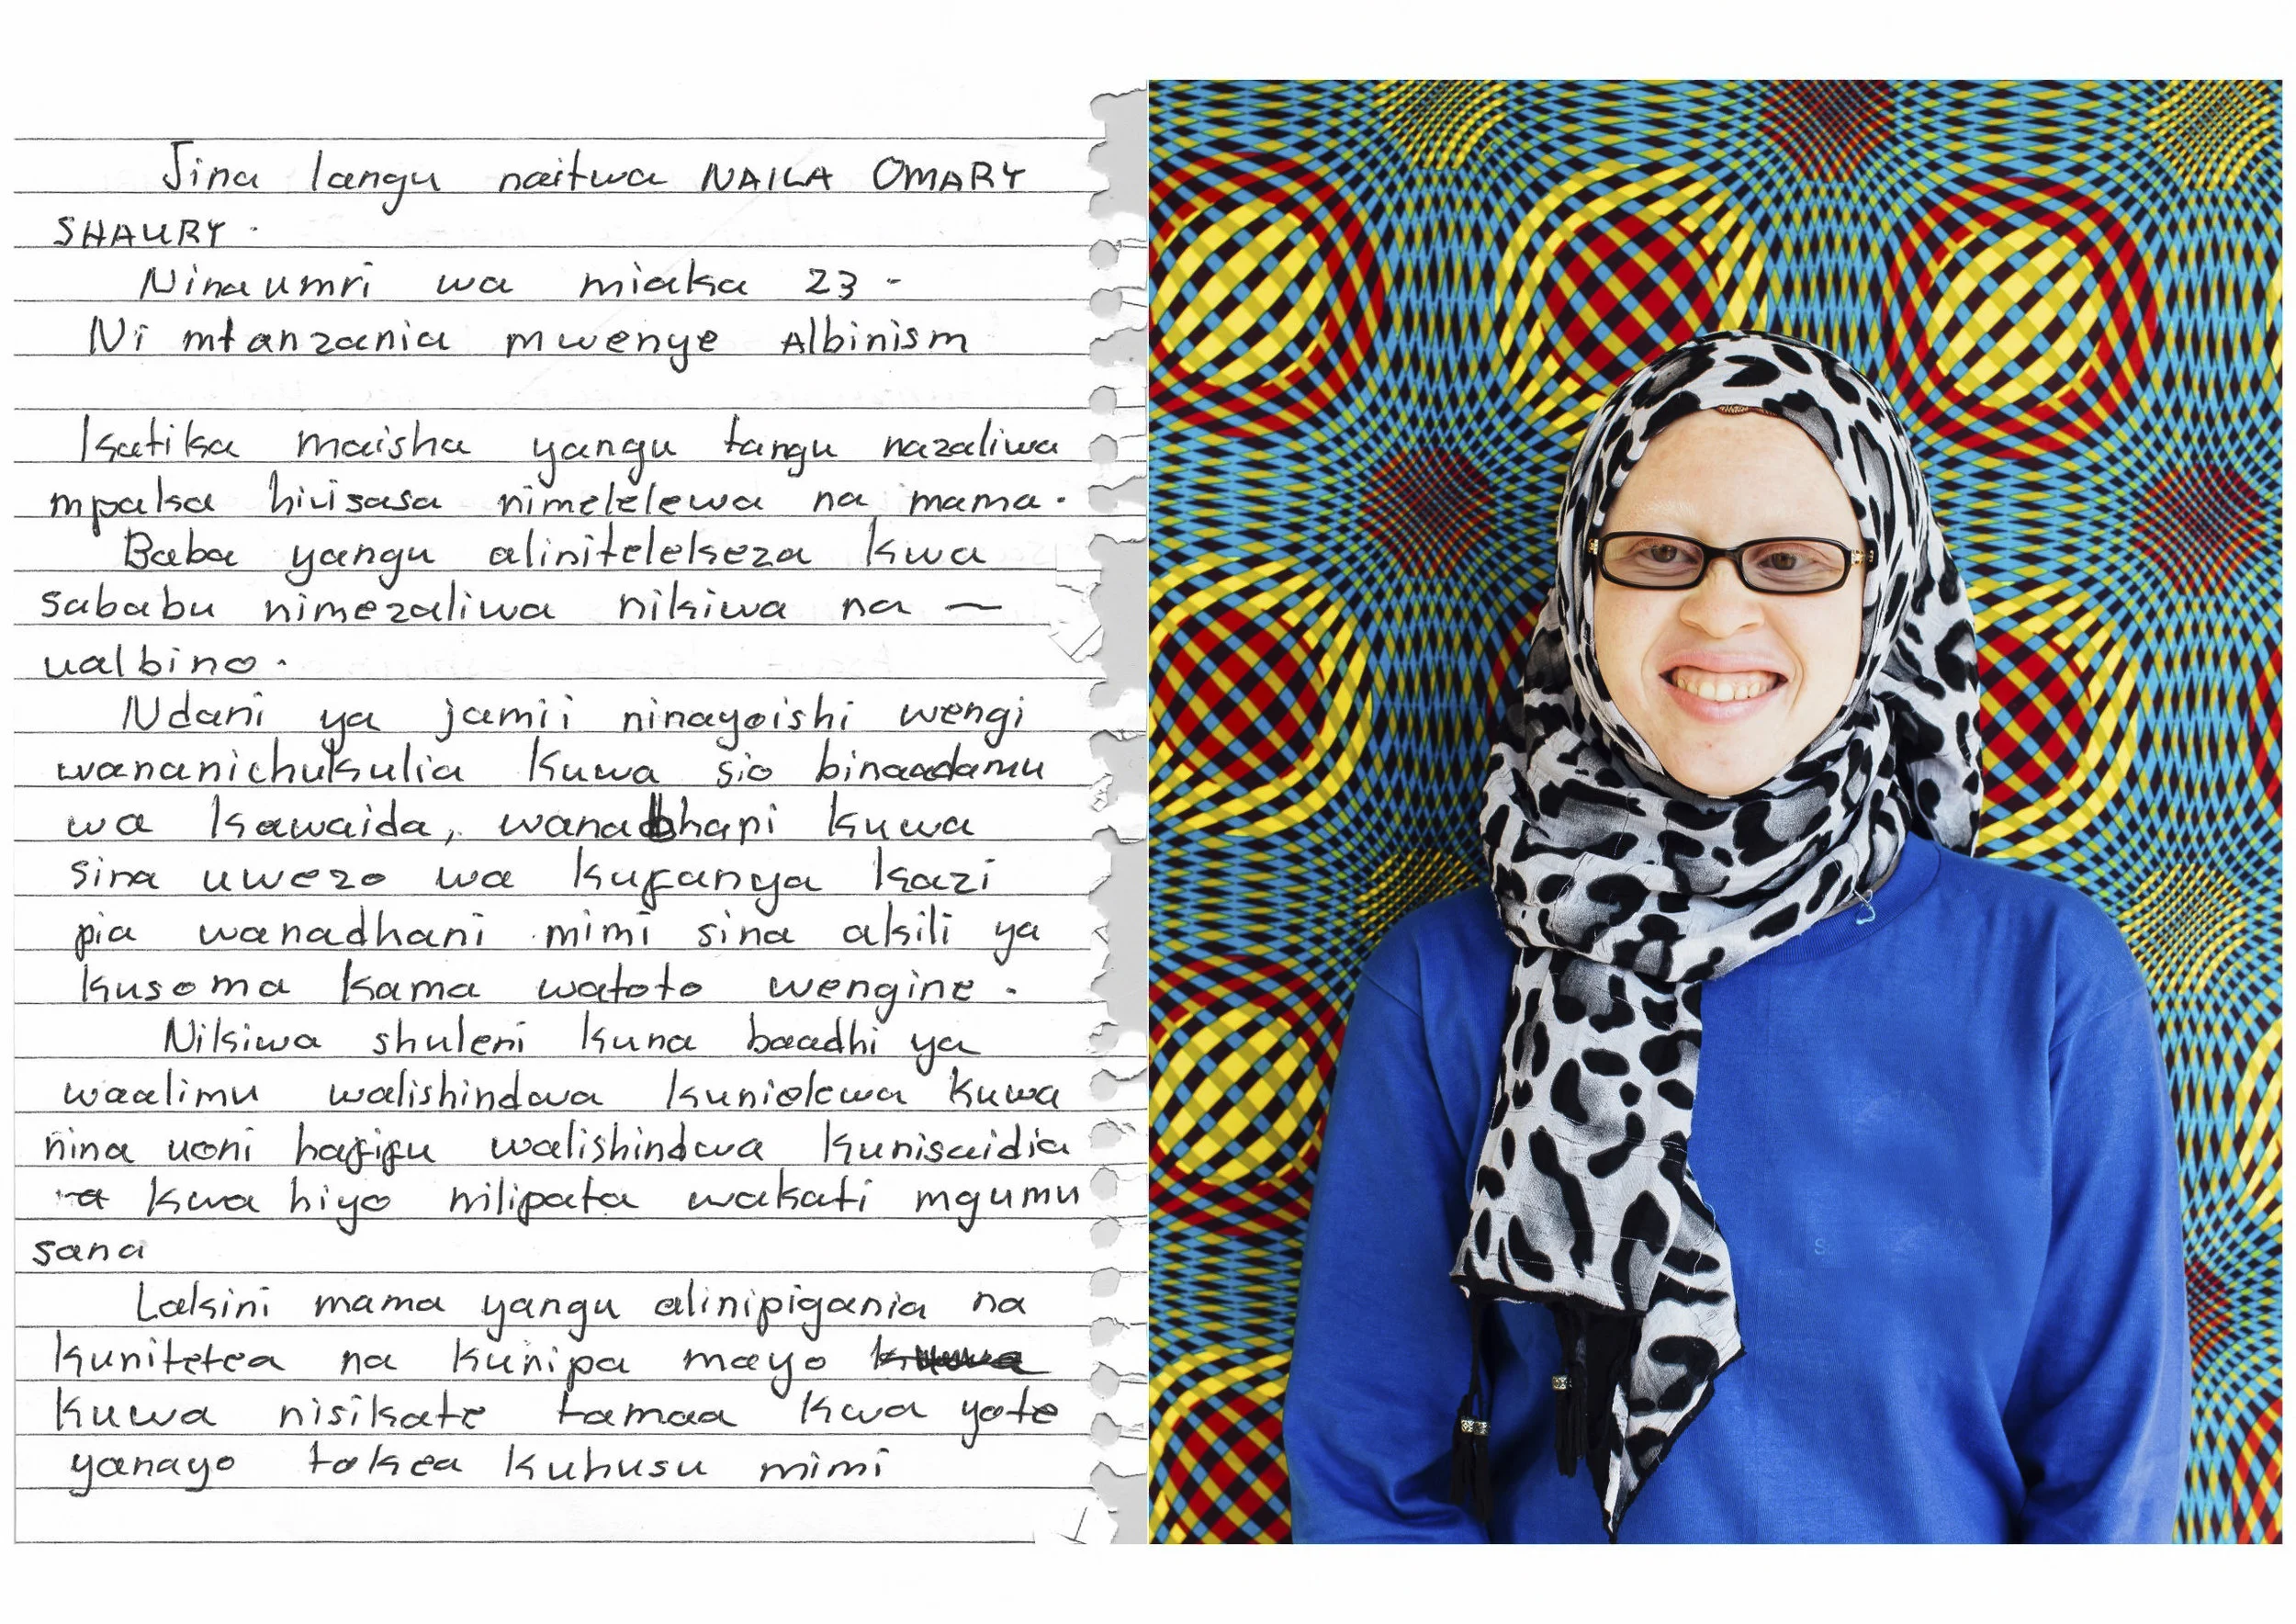 Jina langu naitwa NAILA OMARY
SHAURY.
Ninaumri wa miaka 23 -
Ni mtanzania mwenye Albinism
Katika maisha yangu tangu nazaliwa
mpaka hivisasa nimelelewa na mama.
Baba yangu alinitelekeza kwa
sababu nimezaliwa nikiwa na —
ualbino.
Ndani ya jamii ninayoishi wengi
wananichukulia kuwa sio binaadamu
wa kawaida, wanadhani kuwa
sina uwezo wa kufanya kazi
pia wanadhani mimi sina akili ya
kusoma kama watoto wengine.
Nikiwa shuleni kuna baadhi ya
waalimu walishindwa kunielewa kuwa
nina uoni hafifu walishindwa kunisaidia
kwa hiyo nilipata wakati mgumu
sana
Lakini mama yangu alinipigania na
kunitetea na kunipa moyo
kuwa nisikate tamaa kwa yote
yanayo tokea kuhusu mimi